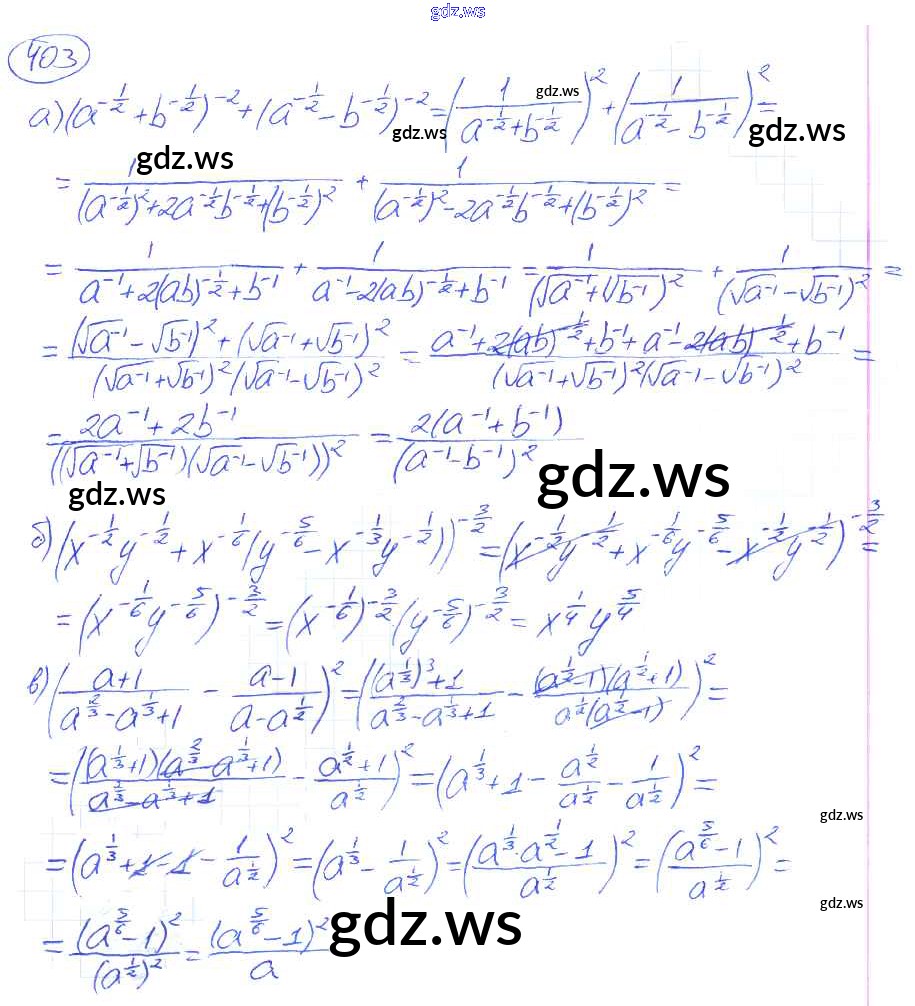 gdz.ws
403
а) (a^{-1/2} + b^{-1/2})^{-2} + (a^{-1/2} - b^{-1/2})^{-2} = (1/(a^{-1/2} + b^{-1/2}))^2 + (1/(a^{-1/2} - b^{-1/2}))^2 =
gdz.ws
gdz.ws
gdz.ws
gdz.ws
= 1/((a^{-1/2})^2 + 2a^{-1/2}b^{-1/2} + (b^{-1/2})^2) + 1/((a^{-1/2})^2 - 2a^{-1/2}b^{-1/2} + (b^{-1/2})^2) =
= 1/(a^{-1} + 2(ab)^{-1/2} + b^{-1}) + 1/(a^{-1} - 2(ab)^{-1/2} + b^{-1}) = 1/(√a^{-1} + √b^{-1})^2 + 1/(√a^{-1} - √b^{-1})^2 =
= ((√a^{-1} - √b^{-1})^2 + (√a^{-1} + √b^{-1})^2)/((√a^{-1} + √b^{-1})^2 (√a^{-1} - √b^{-1})^2) = (a^{-1} + 2(ab)^{-1/2} + b^{-1} + a^{-1} - 2(ab)^{-1/2} + b^{-1})/((√a^{-1} + √b^{-1})^2 (√a^{-1} - √b^{-1})^2) =
= (2a^{-1} + 2b^{-1})/((√a^{-1} + √b^{-1})(√a^{-1} - √b^{-1}))^2 = 2(a^{-1} + b^{-1})/(a^{-1} - b^{-1})^2
gdz.ws
gdz.ws
б) (x^{-1/2}y^{-1/2} + x^{-1/6}(y^{-5/6} - x^{-1/3}y^{-1/2}))^{-3/2} = (x^{-1/2}y^{-1/2} + x^{-1/6}y^{-5/6} - x^{-1/2}y^{-1/2})^{-3/2} =
= (x^{-1/6}y^{-5/6})^{-3/2} = (x^{-1/6})^{-3/2} (y^{-5/6})^{-3/2} = x^{1/4} y^{5/4}
в) ((a+1)/(a^{2/3} - a^{1/3} + 1) - (a-1)/(a - a^{1/2}))^2 = (((a^{1/3})^3 + 1)/(a^{2/3} - a^{1/3} + 1) - (a^{1/2} - 1)(a^{1/2} + 1)/(a^{1/2}(a^{1/2} - 1)))^2 =
= ((a^{1/3} + 1)(a^{2/3} - a^{1/3} + 1)/(a^{2/3} - a^{1/3} + 1) - (a^{1/2} + 1)/a^{1/2})^2 = (a^{1/3} + 1 - a^{1/2}/a^{1/2} - 1/a^{1/2})^2 =
gdz.ws
= (a^{1/3} + 1 - 1 - 1/a^{1/2})^2 = (a^{1/3} - 1/a^{1/2})^2 = ((a^{1/3}·a^{1/2} - 1)/a^{1/2})^2 = ((a^{5/6} - 1)/a^{1/2})^2 =
gdz.ws
= (a^{5/6} - 1)^2/(a^{1/2})^2 = (a^{5/6} - 1)^2/a
gdz.ws